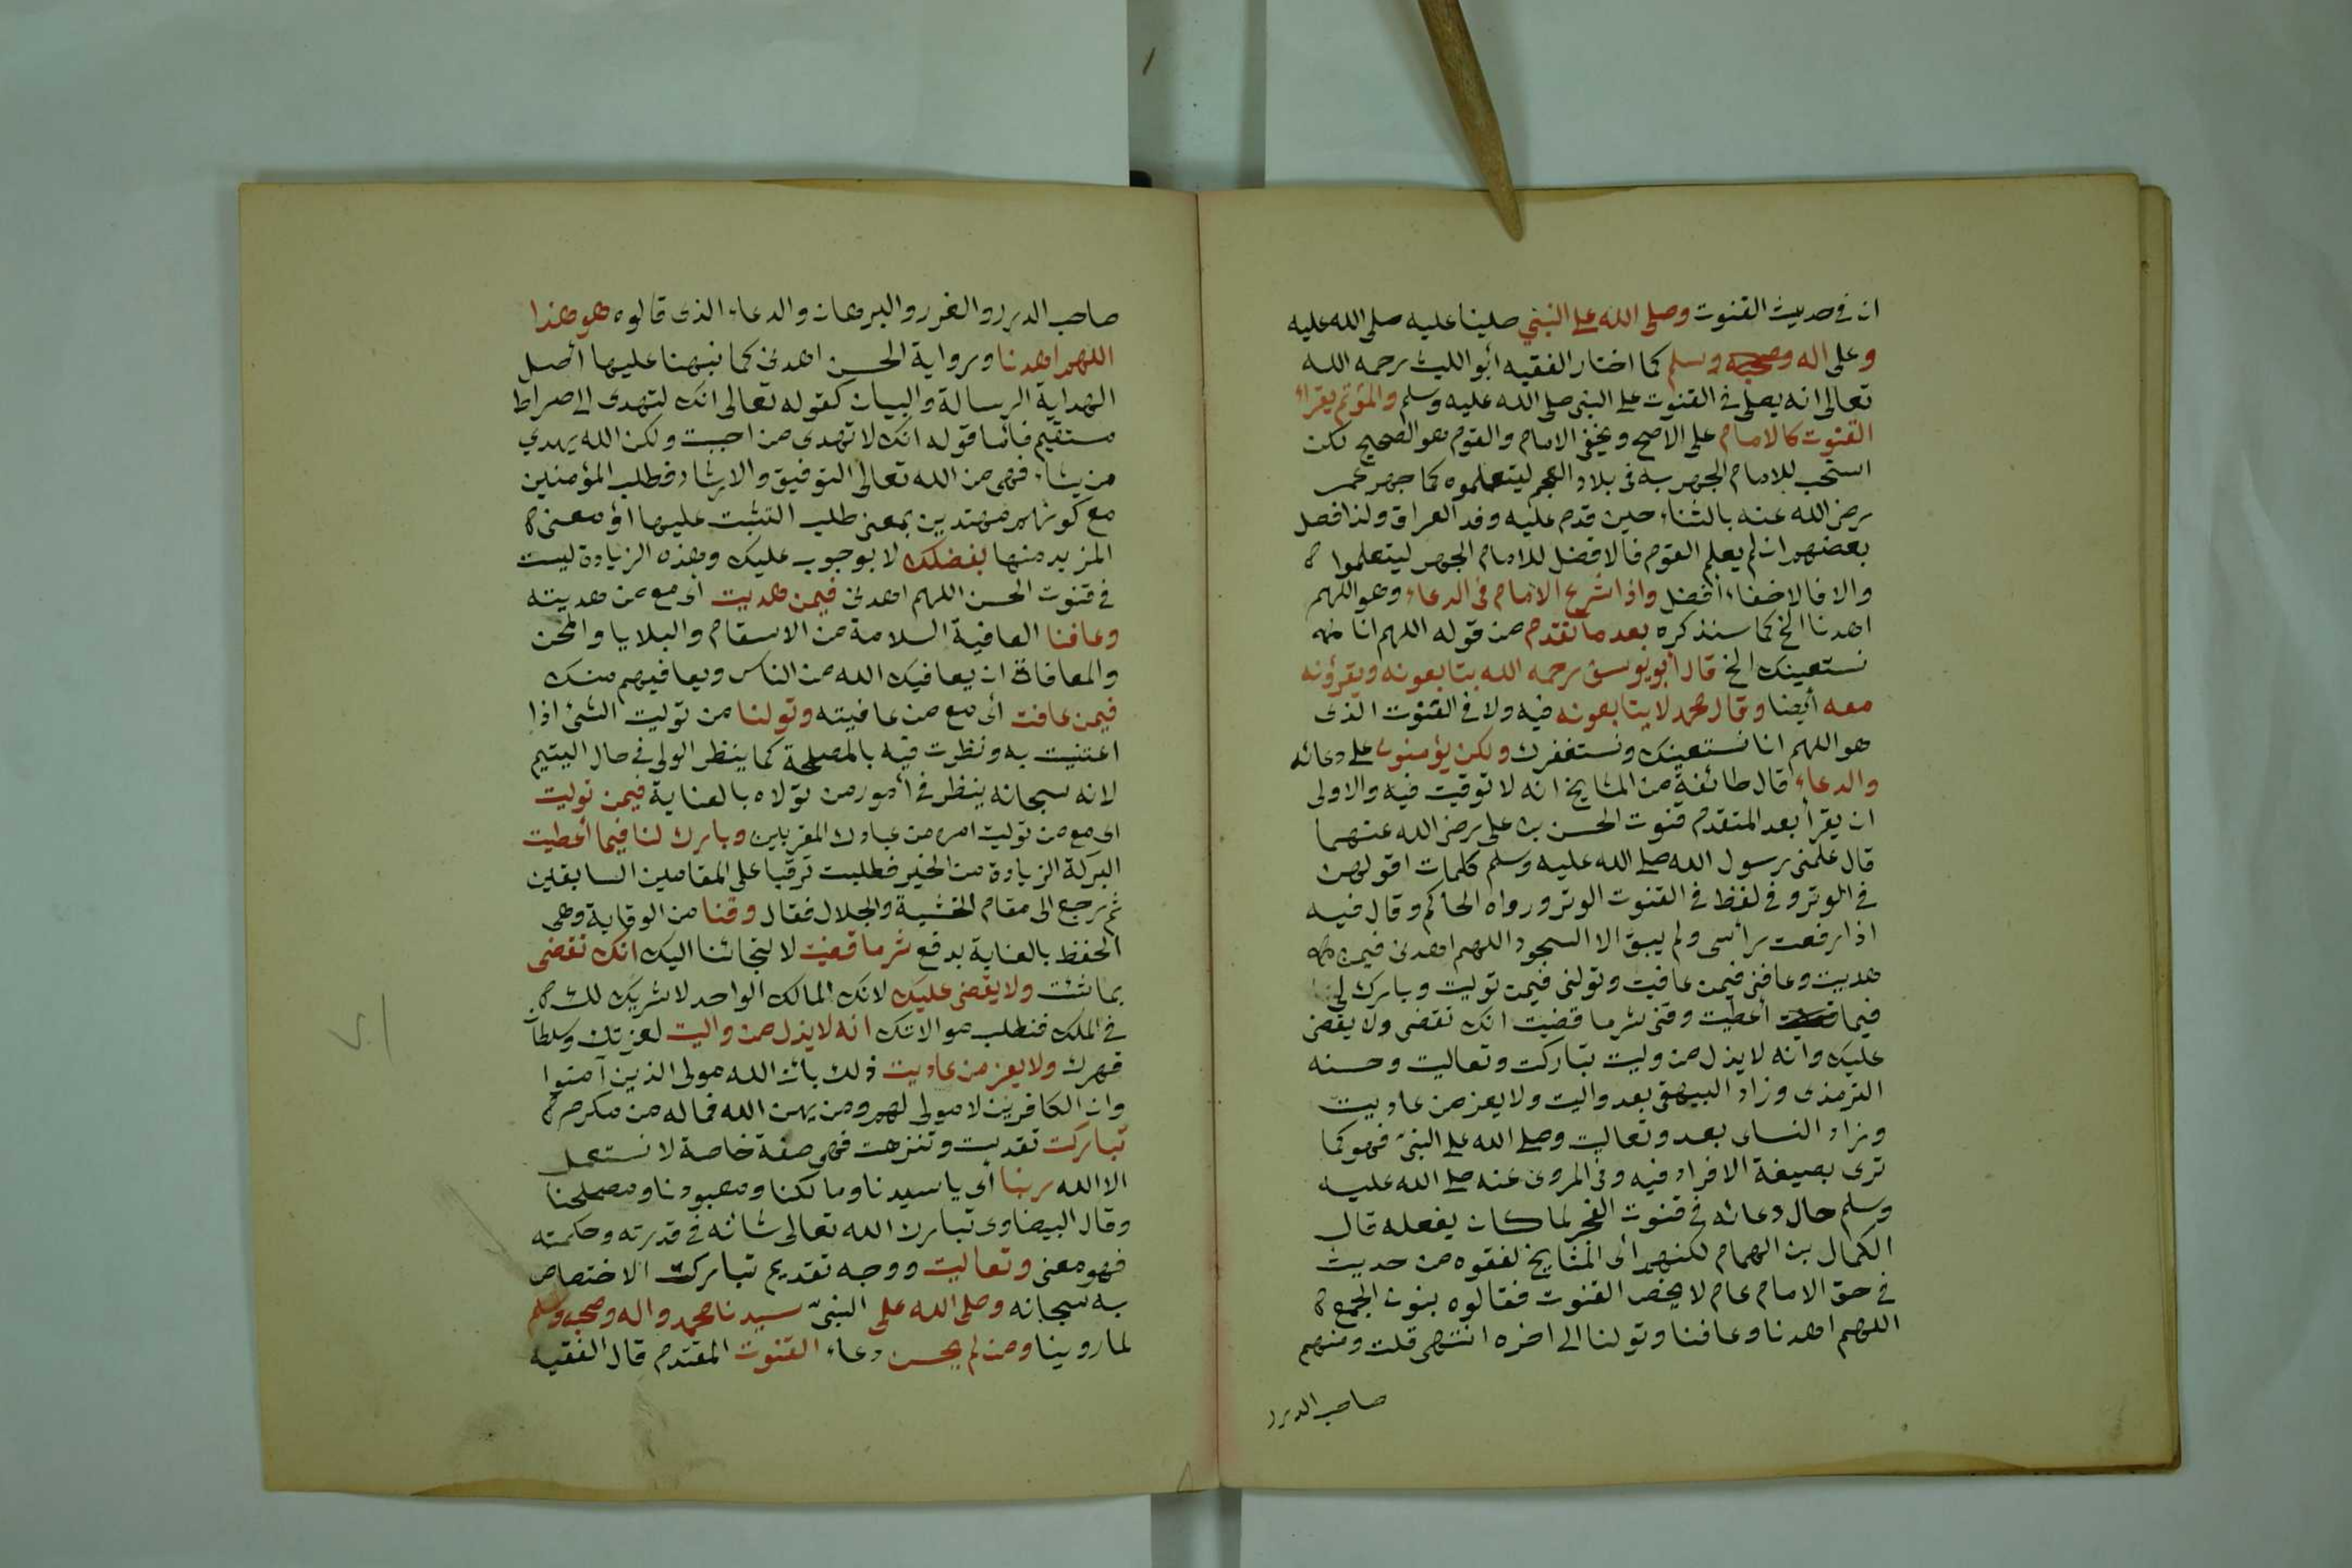 ان في حديث القنوت وصلى الله على النبي صلينا عليه صلى الله عليه
وعلى اله وصحبه وسلم كما اختار الفقيه أبو الليث رحمه الله
تعالى انه يصلى في القنوت على النبي صلى الله عليه وسلم والمؤتم يقرأ
القنوت كالامام على الاصح ويخفى الامام والقوم هو الصحيح لكن
استحب للامام الجهر به في بلاد العجم ليتعلموه كما جهر عمر
رضي الله عنه بالثناء حين قدم عليه وفد العراق ولذا فصل
بعضهم ان لم يعلم القوم فالافضل للامام الجهر ليتعلموا
والا فالاخفاء أفضل واذا شرع الامام في الدعاء وهو اللهم
اهدنا الخ كما سنذكره بعد ما تقدم من قوله اللهم انا
نستعينك الخ قال أبو يوسف رحمه الله يتابعونه ويقرؤنه
معه أيضا وقال محمد لا يتابعونه فيه ولا في القنوت الذى
هو اللهم انا نستعينك ونستغفرك ولكن يؤمنون على دعائه
والدعاء قال طائفة من المشايخ انه لا توقيت فيه والاولى
ان يقرأ بعد المتقدم قنوت الحسن بن على رضي الله عنهما
قال علمنى رسول الله صلى الله عليه وسلم كلمات اقولهن
في الوتر وفي لفظ في القنوت الوتر ورواه الحاكم وقال فيه
اذا رفعت رأسى ولم يبق الا السجود اللهم اهدنى فيمن
هديت وعافنى فيمن عافيت وتولنى فيمن توليت وبارك لى
فيما أعطيت وقنى شر ما قضيت انك تقضى ولا يقضى
عليك وانه لا يذل من وليت تباركت وتعاليت وحسنه
الترمذى وزاد البيهقى بعد واليت ولا يعز من عاديت
وزاد النساى بعد وتعاليت وصلى الله على النبي فهو كما
ترى بصيغة الافراد فيه وفي المروى عنه صلى الله عليه
وسلم حال دعائه في قنوت الفجر لما كان يفعله قال
الكمال بن الهمام لكنهم أى المشايخ لفقوه من حديث
في حق الامام عام لا يخص القنوت فقالوه بنون الجمع
اللهم اهدنا وعافنا وتولنا الى اخره انتهى قلت ومنهم
صاحب الدرر
صاحب الدرر والغرر والبرهان والدعاء الذى قالوه هو هذا
اللهم اهدنا ورواية الحسن اهدنى كما نبهنا عليها أصل
الهداية الرسالة والبيان كقوله تعالى انك لتهدى الى صراط
مستقيم فاما قوله انك لا تهدى من احببت ولكن الله يهدي
من يشاء فهى من الله تعالى التوفيق والارشاد فطلب المؤمنين
مع كونهم مهتدين بمعنى طلب التثبت عليها أو معنى
المزيد منها بفضلك لا بوجوب عليك وهذه الزيادة ليست
في قنوت الحسن اللهم اهدنى فيمن هديت أى مع من هديته
وعافنا العافية السلامة من الاسقام والبلايا والمحن
والمعافاة ان يعافيك الله من الناس ويعافيهم منك
فيمن عافت أى مع من عافيته وتولنا من توليت الشئ اذا
اعتنيت به ونظرت فيه بالمصلحة كما ينظر الولى في حال اليتيم
لانه سبحانه ينظر في أمور من تولاه بالعناية فيمن توليت
اى مع من توليت امره من عبادك المقربين وبارك لنا فيما أعطيت
البركة الزيادة من الخير فطلبت ترقيا على المقامين السابقين
ثم رجع الى مقام الخشية والجلال فقال وقنا من الوقاية وهى
الحفظ بالعناية بدفع شر ما قضيت لالتجائنا اليك انك تقضى
بما شئت ولا يقضى عليك لانك المالك الواحد لا شريك لك
في الملك فنطلب موالاتك انه لا يذل من واليت لعزتك وسلطان
قهرك ولا يعز من عاديت ذلك بان الله مولى الذين آمنوا
وان الكافرين لا مولى لهم ومن يهن الله فما له من مكرم
تباركت تقدست وتنزهت فهى صفة خاصة لا تستعمل
الا الله ربنا أى يا سيدنا ومالكنا ومعبودنا ومصلحنا
وقال البيضاوى تبارك الله تعالى شانه في قدرته وحكمته
فهو معنى وتعاليت ووجه تقديم تباركت الاختصاص
به سبحانه وصلى الله على النبي سيدنا محمد واله وصحبه وسلم
لما روينا ومن لم يحسن دعاء القنوت المقتدم قال الفقيه